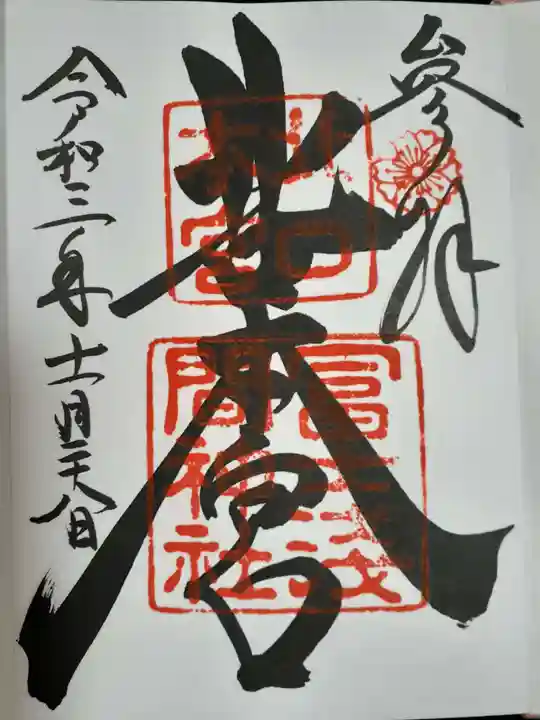 参拝
北口本宮
北口
本宮
冨士浅
間神社
令和三年十一月二十八日